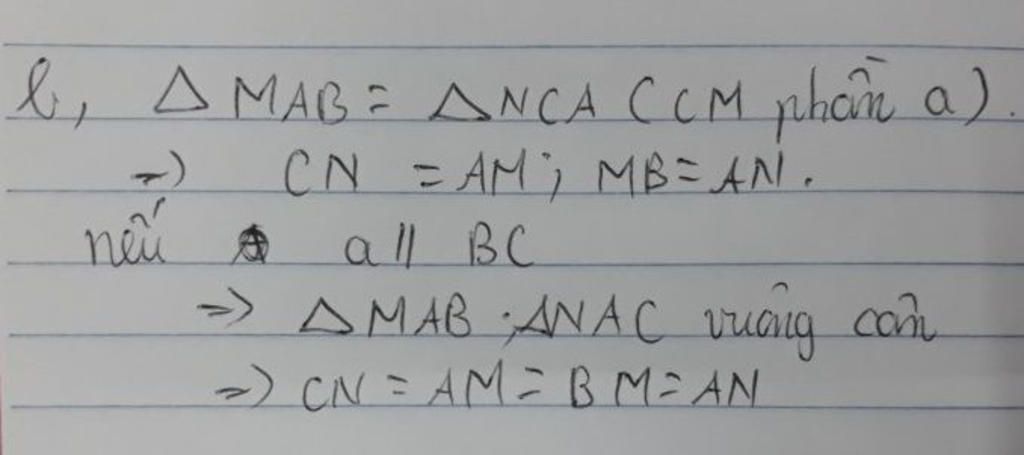 b, △ MAB = △NCA (CM phần a).
=> CN = AM; MB = AN.
nếu a // BC
=> △MAB; △NAC vuông cân
=> CN = AM = BM = AN